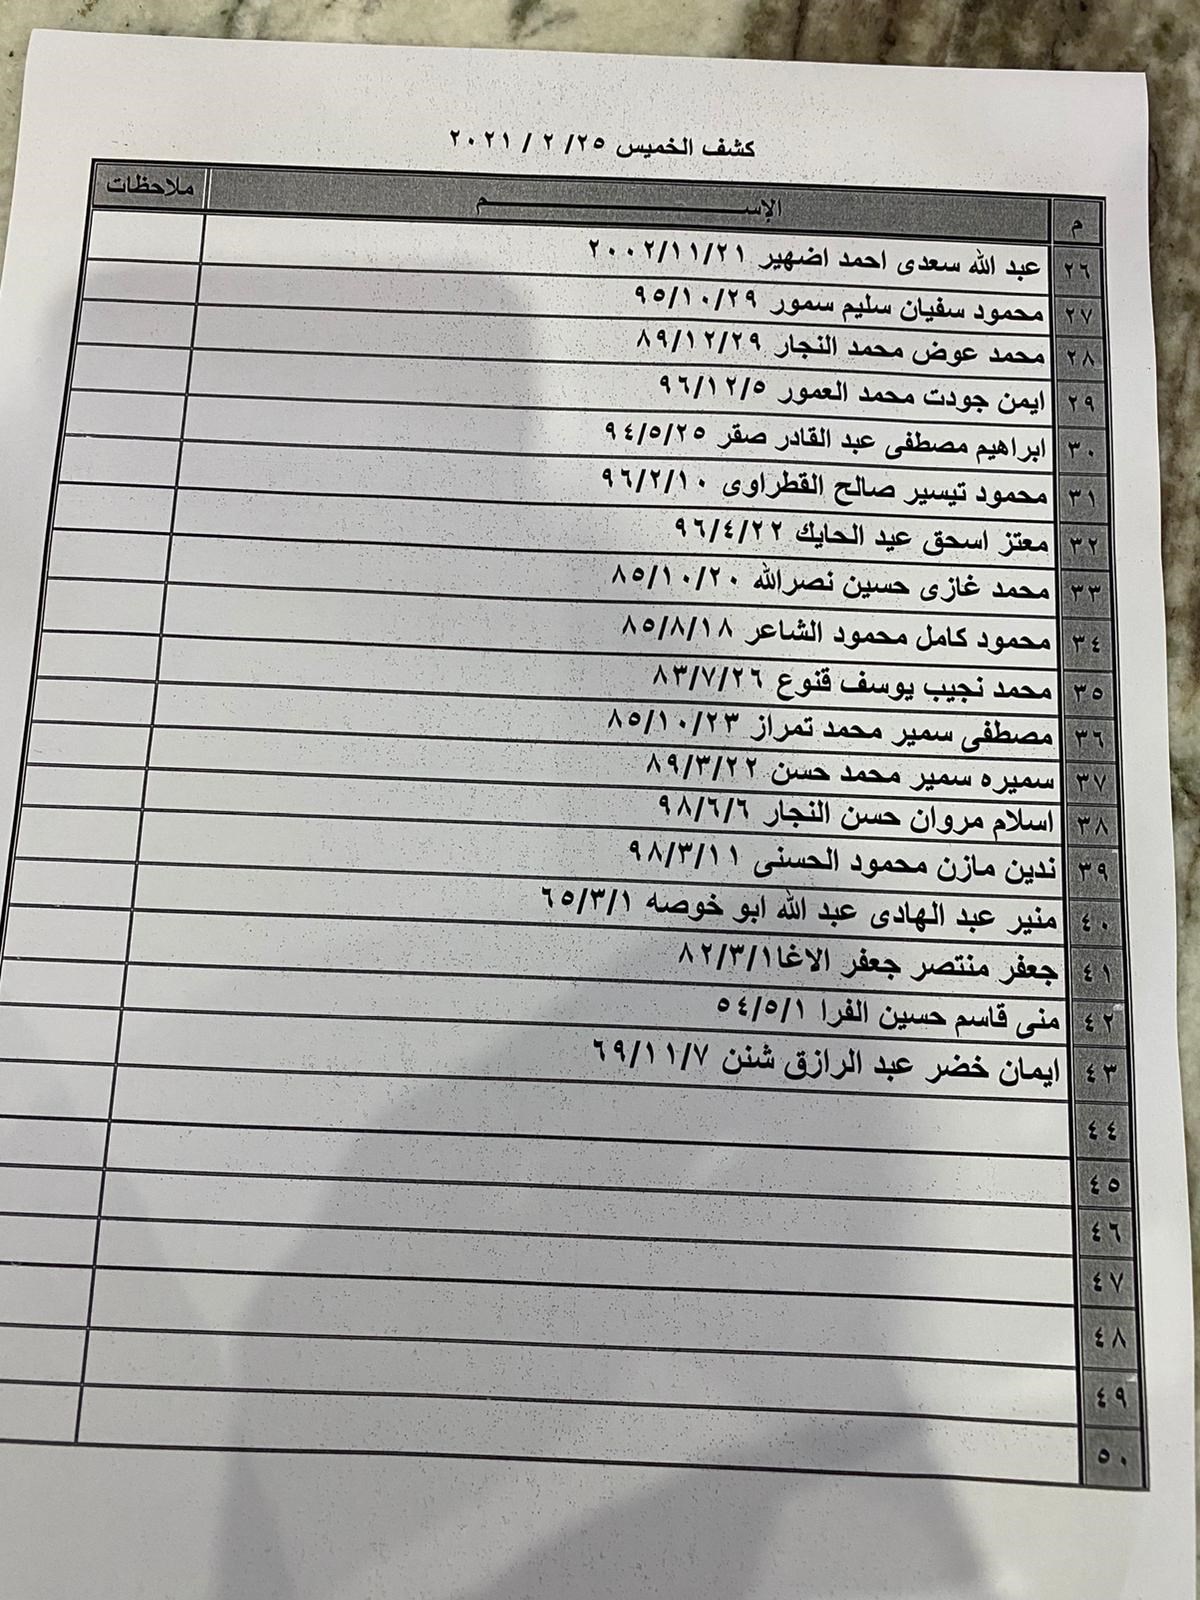 كشف الخميس ٢٥/ ٢ / ٢٠٢١
م الإســـــــــم ملاحظات
٢٦ عبد الله سعدى احمد اضهير ٢٠٠٢/١١/٢١
٢٧ محمود سفيان سليم سمور ٩٥/١٠/٢٩
٢٨ محمد عوض محمد النجار ٨٩/١٢/٢٩
٢٩ ايمن جودت محمد العمور ٩٦/١٢/٥
٣٠ ابراهيم مصطفى عبد القادر صقر ٩٤/٥/٢٥
٣١ محمود تيسير صالح القطراوى ٩٦/٢/١٠
٣٢ معتز اسحق عيد الحايك ٩٦/٤/٢٢
٣٣ محمد غازى حسين نصرالله ٨٥/١٠/٢٠
٣٤ محمود كامل محمود الشاعر ٨٥/٨/١٨
٣٥ محمد نجيب يوسف قنوع ٨٣/٧/٢٦
٣٦ مصطفى سمير محمد تمراز ٨٥/١٠/٢٣
٣٧ سميره سمير محمد حسن ٨٩/٣/٢٢
٣٨ اسلام مروان حسن النجار ٩٨/٦/٦
٣٩ ندين مازن محمود الحسنى ٩٨/٣/١١
٤٠ منير عبد الهادى عبد الله ابو خوصه ٦٥/٣/١
٤١ جعفر منتصر جعفر الاغا٨٢/٣/١
٤٢ منى قاسم حسين الفرا ٥٤/٥/١
٤٣ ايمان خضر عبد الرازق شنن ٦٩/١١/٧
٤٤
٤٥
٤٦
٤٧
٤٨
٤٩
٥٠